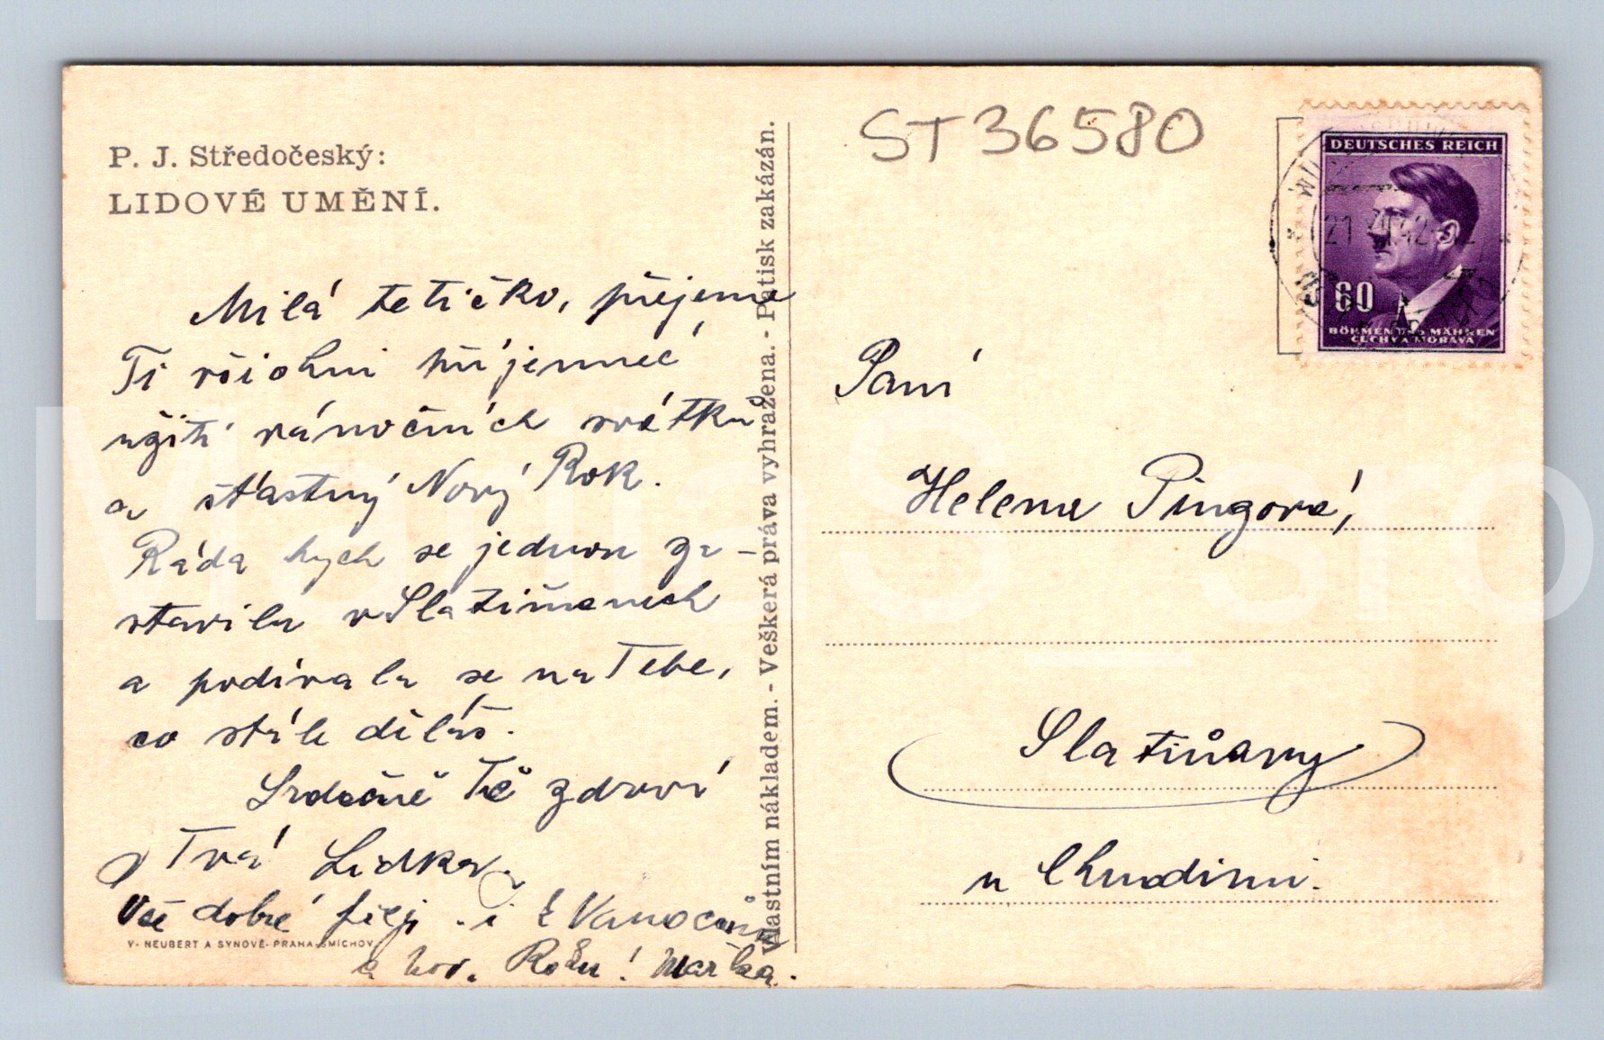 P. J. Středočeský:
LIDOVÉ UMĚNÍ.
Milá tetičko, přejeme
Ti všichni příjemné
užití vánočních svátků
a šťastný Nový Rok.
Ráda bych se jednou za-
stavila v Slatiňanech
a podívala se na Tebe,
co stále děláš.
Srdečně Tě zdraví
Tvá Lidka.
Vše dobré přeji i k Vánocům
a nov. Roku! Mařka.
V. NEUBERT A SYNOVÉ-PRAHA-SMÍCHOV
Vlastním nákladem. - Veškerá práva vyhražena. - Patisk zakázán.
ST36580
DEUTSCHES REICH
60
BÖHMEN UND MÄHREN
ČECHY A MORAVA
Paní
Helena Pingorá,
Slatiňany
u Chrudimi.